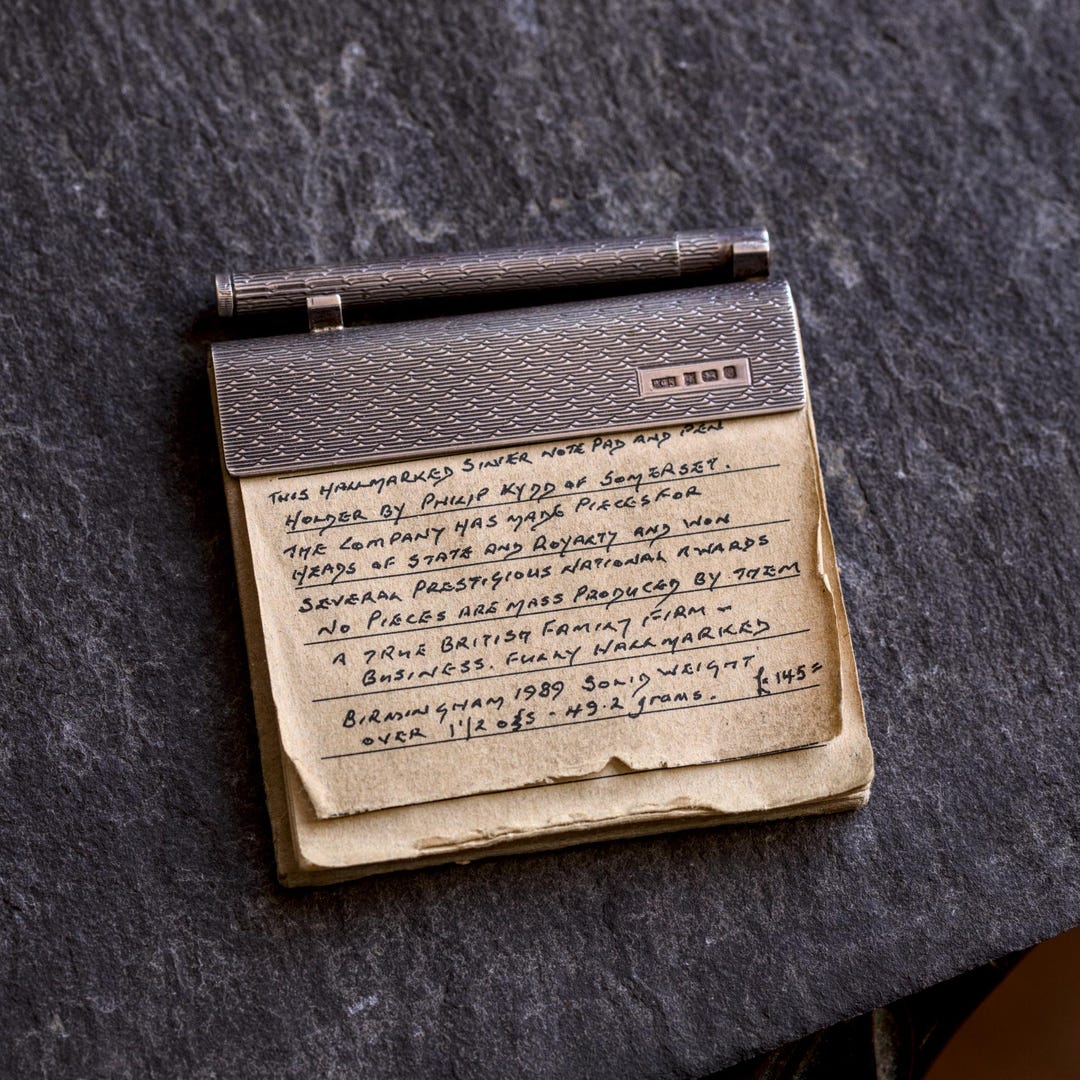 THIS HALLMARKED SILVER NOTE PAD AND PEN
HOLDER BY PHILIP KYDD OF SOMERSET.
THE COMPANY HAS MADE PIECES FOR
HEADS OF STATE AND ROYALTY AND WON
SEVERAL PRESTIGIOUS NATIONAL AWARDS
NO PIECES ARE MASS PRODUCED BY THEM
A TRUE BRITISH FAMILY FIRM -
BUSINESS. FULLY HALLMARKED
BIRMINGHAM 1989 SOLID WEIGHT
OVER 1 1/2 ozs - 49.2 grams. £145=